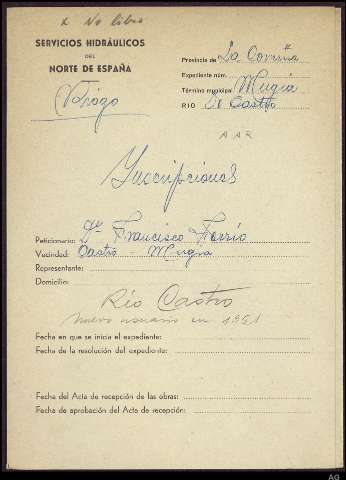 x No libro
SERVICIOS HIDRÁULICOS
DEL
NORTE DE ESPAÑA
Provincia de La Coruña
Expediente núm.
Término municipal Mugía
RIO El Castro
A A R
Inscripciones
Peticionario: Francisco Ferrío
Vecindad: Castro - Mugía
Representante:
Domicilio:
Río Castro
nuevo usuario en 1961
Fecha en que se inicia el expediente:
Fecha de la resolución del expediente:
Fecha del Acta de recepción de las obras:
Fecha de aprobación del Acta de recepción:
AG